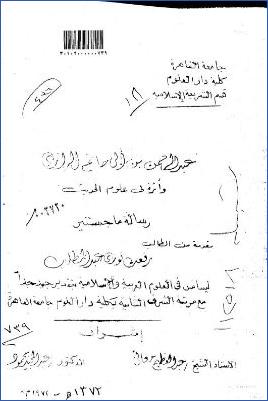 جامعة القاهرة
كلية دار العلوم
قسم الشريعة الإسلامية
١٨
عبد الرحمن بن أبى حاتم الرازى
وأثره فى علوم الحديث
رسالة ماجستير
مقدمة من الطالب
رفعت فوزى عبد المطلب
لنيل
فى العلوم العربية والإسلامية بتقدير جيد جدا
مع مرتبة الشرف الثانية بكلية دار العلوم جامعة القاهرة
٧٣٩
إشراف
الاستاذ الشيخ
الدكتور عبد المجيد محمود